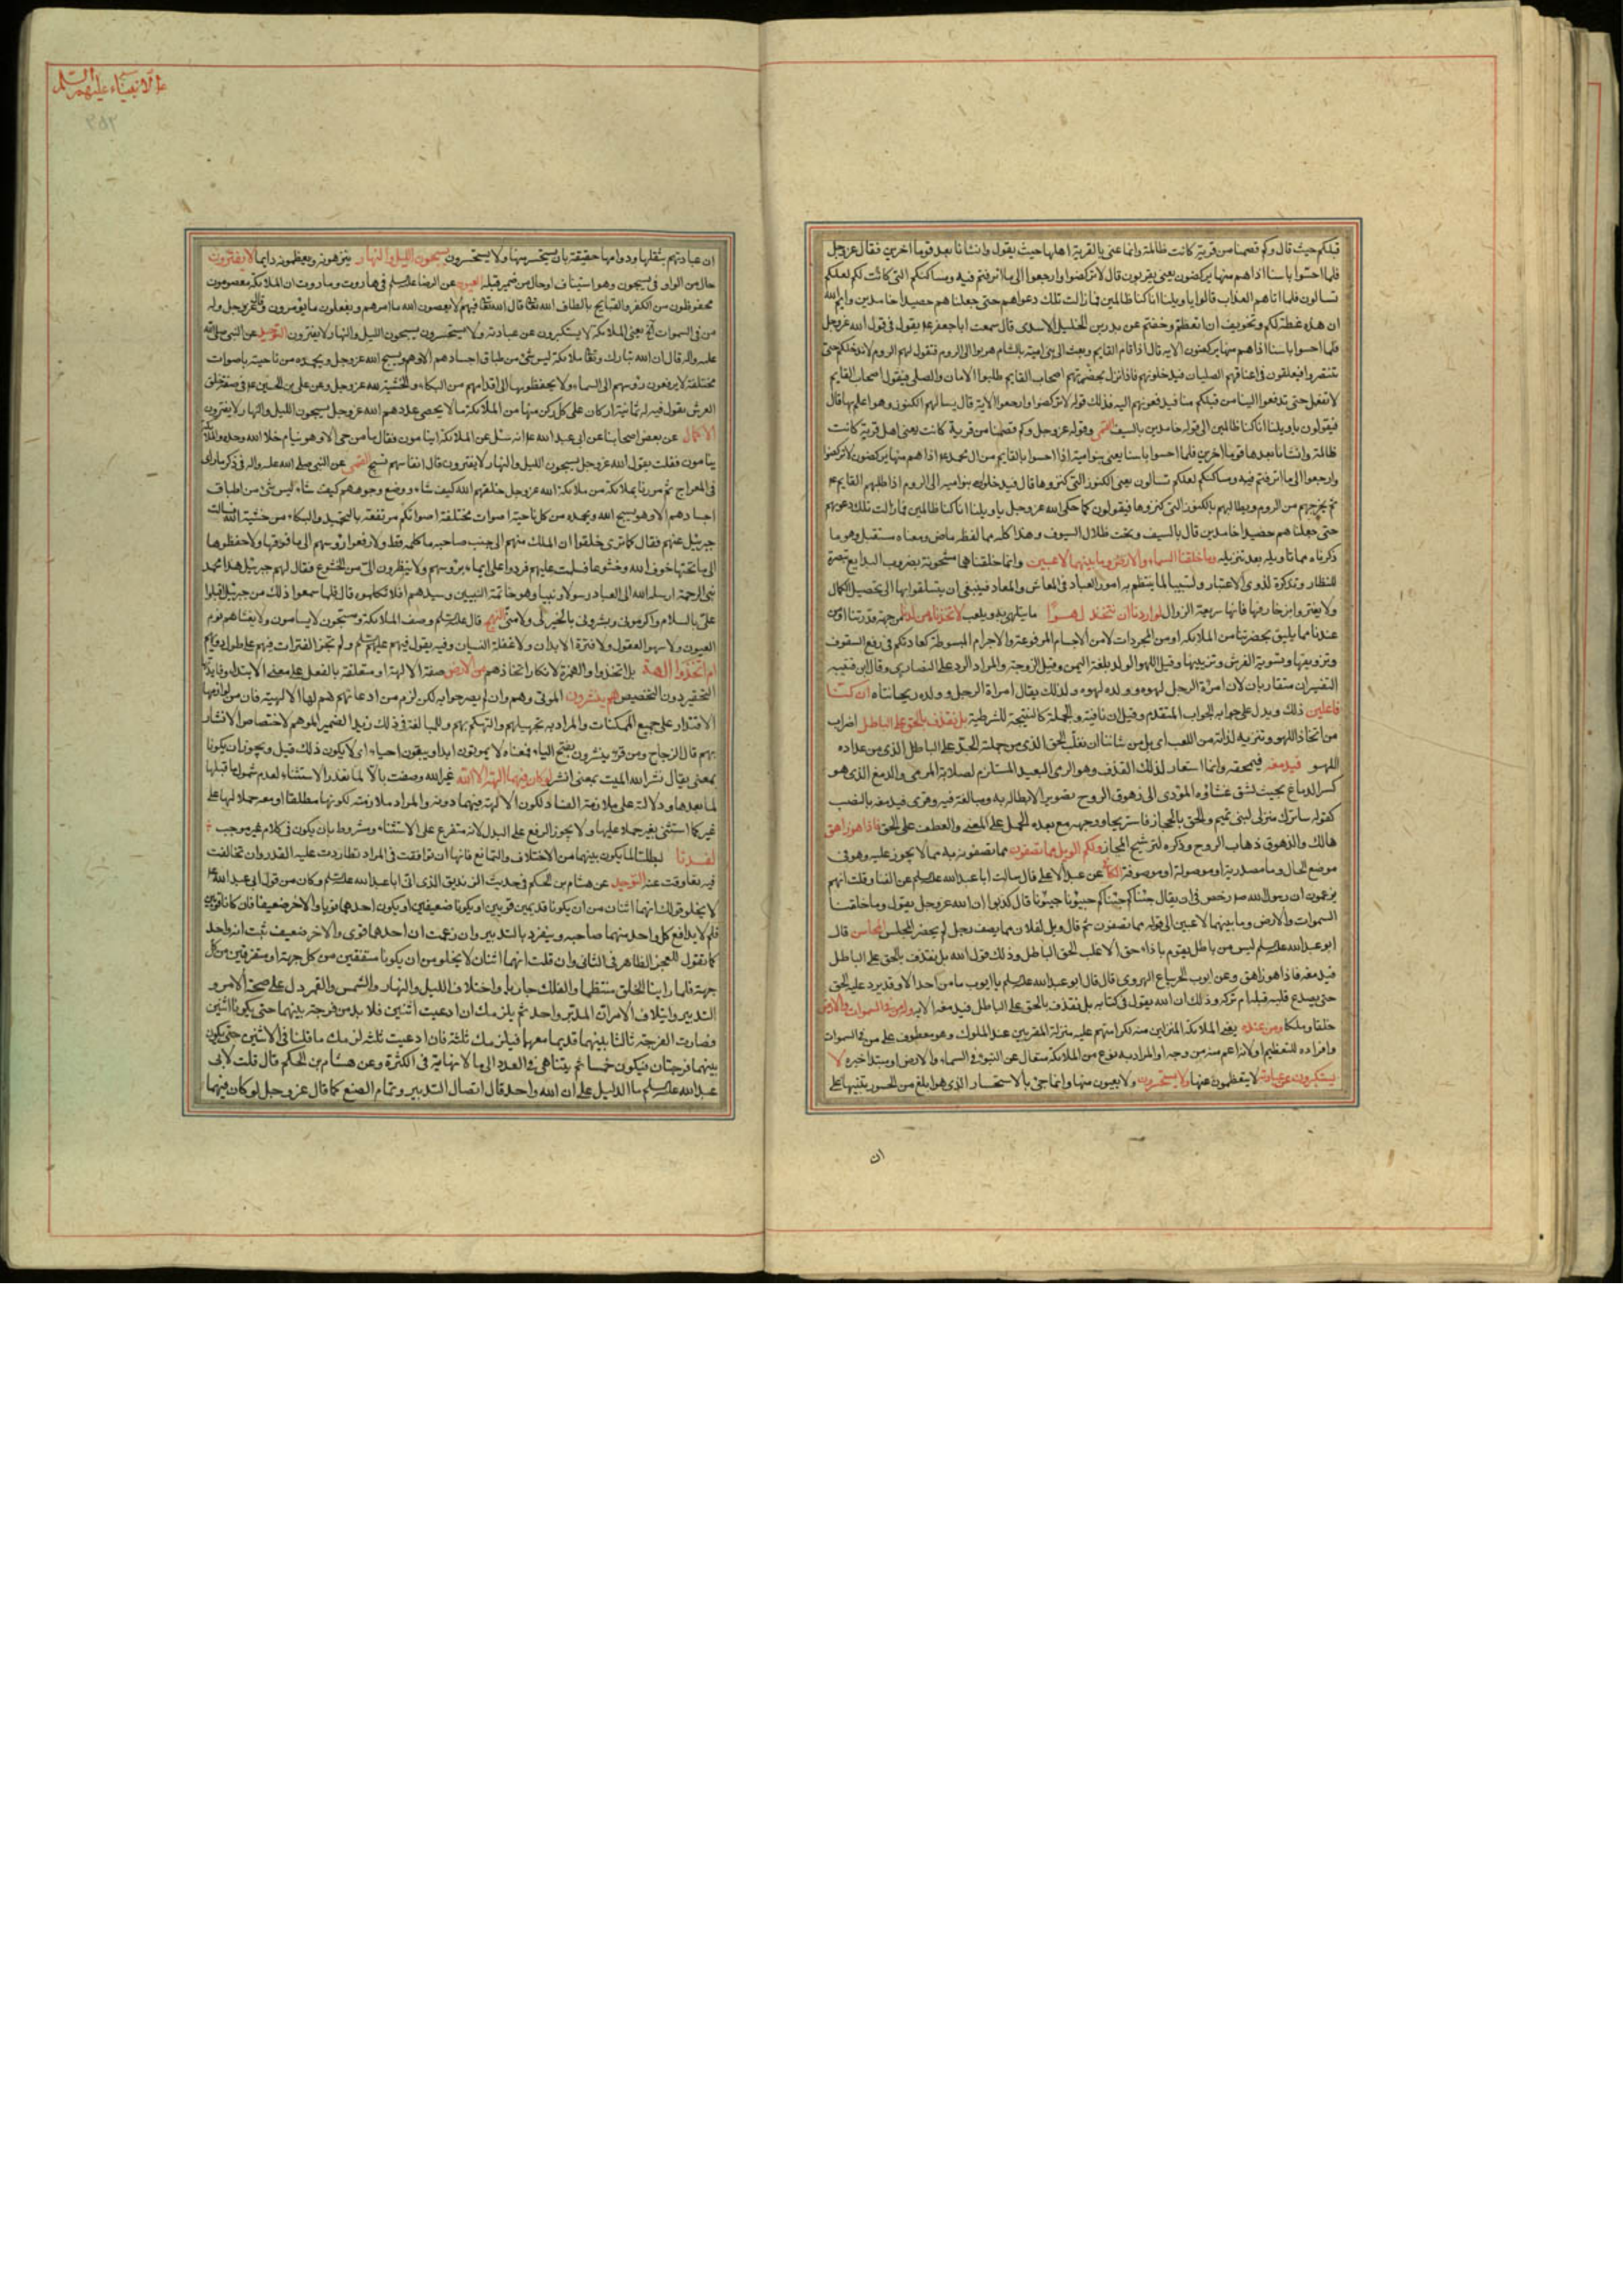 قبلكم حيث قال وكم قصمنا من قرية كانت ظالمة وانما عنى بالقرية اهلها حيث يقول وانشانا بعدها قوما اخرين فقال عز وجل
فلما احسوا باسنا اذا هم منها يركضون يعنى يهربون قال لا تركضوا وارجعوا الى ما اترفتم فيه ومساكنكم التى كانت لكم لعلكم
تسالون فلما اتاهم العذاب قالوا يا ويلنا انا كنا ظالمين فما زالت تلك دعواهم حتى جعلناهم حصيدا خامدين وايم الله
ان هذه عظة لكم وتخويف ان اتعظتم وخفتم عن بدر بن الخليل الاسدى قال سمعت ابا جعفر ع يقول فى قول الله عز وجل
فلما احسوا باسنا اذا هم منها يركضون الاية قال اذا قام القايم وبعث الى بنى امية بالشام هربوا الى الروم فتقول لهم الروم لا ندخلكم حتى
تتنصروا فيعلقون فى اعناقهم الصلبان فيدخلونهم فاذا نزل بحضرتهم اصحاب القايم طلبوا الامان والصلح فيقول اصحاب القايم
لا نفعل حتى تدفعوا الينا من قبلكم منا فيدفعونهم اليه فذلك قوله لا تركضوا وارجعوا الاية قال يسالهم الكنوز وهو اعلم بها قال
فيقولون يا ويلنا انا كنا ظالمين الى قوله خامدين بالسيف القمى وقوله عز وجل وكم قصمنا من قرية كانت يعنى اهل قرية كانت
ظالمة وانشانا بعدها قوما اخرين فلما احسوا باسنا يعنى بنو امية اذا احسوا بالقايم من ال محمد ع اذا هم منها يركضون لا تركضوا
وارجعوا الى ما اترفتم فيه ومساكنكم لعلكم تسالون يعنى الكنوز التى كنزوها قال فيدخلون بنو امية الى الروم اذا طلبهم القايم ع
ثم يخرجهم من الروم ويطالبهم بالكنوز التى كنزوها فيقولون كما حكى الله عز وجل يا ويلنا انا كنا ظالمين فما زالت تلك دعويهم
حتى جعلناهم حصيدا خامدين قال بالسيف وتحت ظلال السيوف وهذا كله مما لفظه ماض ومعناه مستقبل وهو ما
ذكرناه مما تاويله بعد تنزيله وما خلقنا السماء والارض وما بينهما لاعبين وانما خلقناها مشحونة بضروب البدايع تبصرة
للنظار وتذكرة لذوى الاعتبار وتسبيبا لما ينتظم به امور العباد فى المعاش والمعاد فينبغى ان يتسلقوا بها الى تحصيل الكمال
ولا يغتروا بزخارفها فانها سريعة الزوال لو اردنا ان نتخذ لهوا ما يتلهى به ويلعب لاتخذناه من لدنا من جهة قدرتنا او من
عندنا مما يليق بحضرتنا من الملائكة او من المجردات لا من الاجسام المرفوعة والاجرام المبسوطة كعادتكم فى رفع السقوف
وتزويقها وتسوية الفرش وتزيينها وقيل اللهو الولد بلغة اليمن وقيل الزوجة والمراد الرد على النصارى وقال ابن قتيبه
التفسيران متقاربان لان امراة الرجل لهوه وولده لهوه ولذلك يقال امراة الرجل وولده ريحانتاه ان كنا
فاعلين ذلك ويدل على جوابه الجواب المتقدم وقيل ان نافية والجملة كالنتيجة للشرطية بل نقذف بالحق على الباطل اضراب
من اتخاذ اللهو وتنزيه لذاته من اللعب اى بل من شاننا ان نغلب الحق الذى من جملته الجد على الباطل الذى من عداده
اللهو فيدمغه فيمحقه وانما استعار لذلك القذف وهو الرمى البعيد المستلزم لصلابة المرمى والدمغ الذى هو
كسر الدماغ بحيث تشق غشاوه المؤدى الى زهوق الروح تصويرا لابطاله به ومبالغة فيه وقرى فيدمغه بالنصب
كقوله ساترك منزلى لبنى تميم والحق بالحجاز فاستريحا ووجهه مع بعده الحمل على المعنى والعطف على الحق فاذا هو زاهق
هالك والزهوق ذهاب الروح وذكره لترشيح المجاز ولكم الويل مما تصفون مما تصفونه به مما لا يجوز عليه وهو فى
موضع الحال وما مصدرية او موصولة او موصوفة الكافى عن عبد الاعلى قال سالت ابا عبد الله عليه السلم عن الغنا وقلت انهم
يزعمون ان رسول الله ص رخص فى ان يقال جئناكم جئناكم حيونا حيونا قال كذبوا ان الله عز وجل يقول وما خلقنا
السموات والارض وما بينهما لاعبين الى قوله مما تصفون ثم قال ويل لفلان مما يصف رجل لم يحضر المجلس المحاسن قال
ابو عبد الله عليه السلم ليس من باطل يقوم باذاء حق الا غلب الحق الباطل وذلك قول الله بل نقذف بالحق على الباطل
فيدمغه فاذا هو زاهق وعن ايوب الحر بياع الهروى قال قال ابو عبد الله عليه السلم يا ايوب ما من احد الا وقد يرد عليه الحق
حتى يصدع قلبه قبله ام تركه وذلك ان الله يقول فى كتابه بل نقذف بالحق على الباطل فيدمغه الاية وله من فى السموات والارض
خلقا وملكا ومن عنده يعنى الملائكة المنزلين منه لكرامتهم عليه منزلة المقربين عند الملوك وهو معطوف على من فى السموات
وافراده للتعظيم او لانه اعم منه من وجه او المراد به نوع من الملائكة متعال عن التبوء فى السماء والارض او مبتدا خبره لا
يستكبرون عن عبادته لا يتعظمون عنها ولا يستحسرون ولا يعيون منها وانما جئ بالاستحسار الذى هو ابلغ من الحسور تنبيها على
ان
عا الانبياء عليهم السلم
٣٥٢
ان عبادتهم بثقلها ودوامها حقيقة بان يستحسر منها ولا يستحسرون يسبحون الليل والنهار ينزهونه ويعظمونه دايما لا يفترون
حال من الواو فى يسبحون وهو استيناف او حال من ضمير قبله العيون عن الرضا عليه السلم فى هاروت وماروت ان الملائكة معصومون
محفوظون من الكفر والقبايح بالطاف الله تعا قال الله تعا فيهم لا يعصون الله ما امرهم ويفعلون ما يؤمرون وقال عز وجل وله
من فى السموات الخ يعنى الملائكة لا يستكبرون عن عبادته ولا يستحسرون يسبحون الليل والنهار لا يفترون التوحيد عن النبى صلى الله
عليه واله قال ان الله تبارك وتعا ملائكة ليس شئ من طباق اجسادهم الا وهو يسبح الله عز وجل ويحمده من ناحيته باصوات
مختلفة لا يرفعون رؤسهم الى السماء ولا يخفضونها الى اقدامهم من البكاء والخشية لله عز وجل وعن على بن الحسين ع فى صفة خلق
العرش يقول فيه له ثمانية اركان على كل ركن منها من الملائكة ما لا يحصى عددهم الا الله عز وجل يسبحون الليل والنهار لا يفترون
الاكمال عن بعض اصحابنا عن ابى عبد الله ع انه سئل عن الملائكة اينامون فقال ما من حى الا وهو ينام خلا الله وحده والملائكة
ينامون فقلت يقول الله عز وجل يسبحون الليل والنهار لا يفترون قال انفاسهم تسبيح القمى عن النبى صلى الله عليه واله فى ذكر ما راى
فى المعراج ثم مررنا بملائكة من ملائكة الله عز وجل خلقهم الله كيف شاء ووضع وجوههم كيف شاء ليس شئ من اطباق
اجسادهم الا وهو يسبح الله ويحمده من كل ناحية اصوات مختلفة اصواتكم مرتفعة بالتحميد والبكاء من خشية الله فسالت
جبرئيل عنهم فقال كما ترى خلقوا ان الملك منهم الى جنب صاحبه ما كلمه قط ولا رفعوا رؤسهم الى ما فوقها ولا خفضوها
الى ما تحتها خوف الله وخشوعا فسلمت عليهم فردوا على ايماء برؤسهم ولا ينظرون الى من الخشوع فقال لهم جبرئيل هذا محمد
نبى الرحمة ارسله الله الى العباد رسولا ونبيا وهو خاتمة النبيين وسيدهم افلا تكلموه قال فلما سمعوا ذلك من جبرئيل اقبلوا
على بالسلام واكرمونى وبشرونى بالخير لى ولامتى النهج قال عليه السلم وصف الملائكة ومسبحون لا يسامون ولا يغشاهم نوم
العيون ولا سهو العقول ولا فترة الابدان ولا غفلة النسيان وفيه يقول فيهم عليه السلم ولم تجز الفترات فيهم على طول دؤبهم
ام اتخذوا الهة بل اتخذوا والهمزة لانكار اتخاذهم من الارض صفة الالهة او متعلقة بالفعل على معنى الابتداء وفايدتها
التحقير دون التخصيص هم ينشرون الموتى وهم وان لم يصرحوا به لكن لزم من ادعائهم لها الالهية فان من لوازمها
الاقتدار على جميع الممكنات والمراد به تجهيلهم والتهكم بهم وللمبالغة فى ذلك زيد الضمير الموهم لاختصاص الانشار
بهم قال الزجاج ومن قرء ينشرون بفتح الياء فمعناه لا يموتون ابدا ويبقون احياء اى لا يكون ذلك قيل ويجوز ان يكونا
بمعنى يقال نشر الله الميت بمعنى انشر لو كان فيهما الهة الا الله غير الله وصفت بالا لما تعذر الاستثناء لعدم شمول ما قبلها
لما بعدها ودلالته على ملازمة الفساد لكون الالهة فيهما دونه والمراد ملازمته لكونها مطلقا او معه حملا لها على
غير كما استثنى بغير حملا عليها ولا يجوز الرفع على البدل لانه متفرع على الاستثناء ومشروط بان يكون فى كلام غير موجب
لفسدتا لبطلتا لما يكون بينهما من الاختلاف والتمانع فانها ان توافقت فى المراد تطاردت عليه القدر وان تخالفت
فيه تعاوقت عنه التوحيد عن هشام بن الحكم فى حديث الزنديق الذى اتى ابا عبد الله عليه السلم وكان من قول ابى عبد الله ع
لا يخلو قولك انهما اثنان من ان يكونا قديمين قويين او يكونا ضعيفين او يكون احدهما قويا والاخر ضعيفا فان كانا قويين
فلم لا يدافع كل واحد منهما صاحبه ويتفرد بالتدبير وان زعمت ان احدهما قوى والاخر ضعيف ثبت انه واحد
كما نقول للعجز الظاهر فى الثانى وان قلت انهما اثنان لا يخلو من ان يكونا متفقين من كل جهة او متفرقين من كل
جهة فلما راينا الخلق منتظما والفلك جاريا واختلاف الليل والنهار والشمس والقمر دل على صحة الامر و
التدبير وايتلاف الامر ان المدبر واحد ثم يلزمك ان ادعيت اثنين فلا بد من فرجة بينهما حتى يكونا اثنين
فصارت الفرجة ثالثا بينهما قديما معهما فيلزمك ثلثة فان ادعيت ثلثة لزمك ما قلنا فى الاثنين حتى يكون
بينهما فرجتان فيكون خمسا ثم يتناهى فى العدد الى ما لا نهاية فى الكثرة وعن هشام بن الحكم قال قلت لابى
عبد الله عليه السلم ما الدليل على ان الله واحد قال اتصال التدبير وتمام الصنع كما قال عز وجل لو كان فيهما